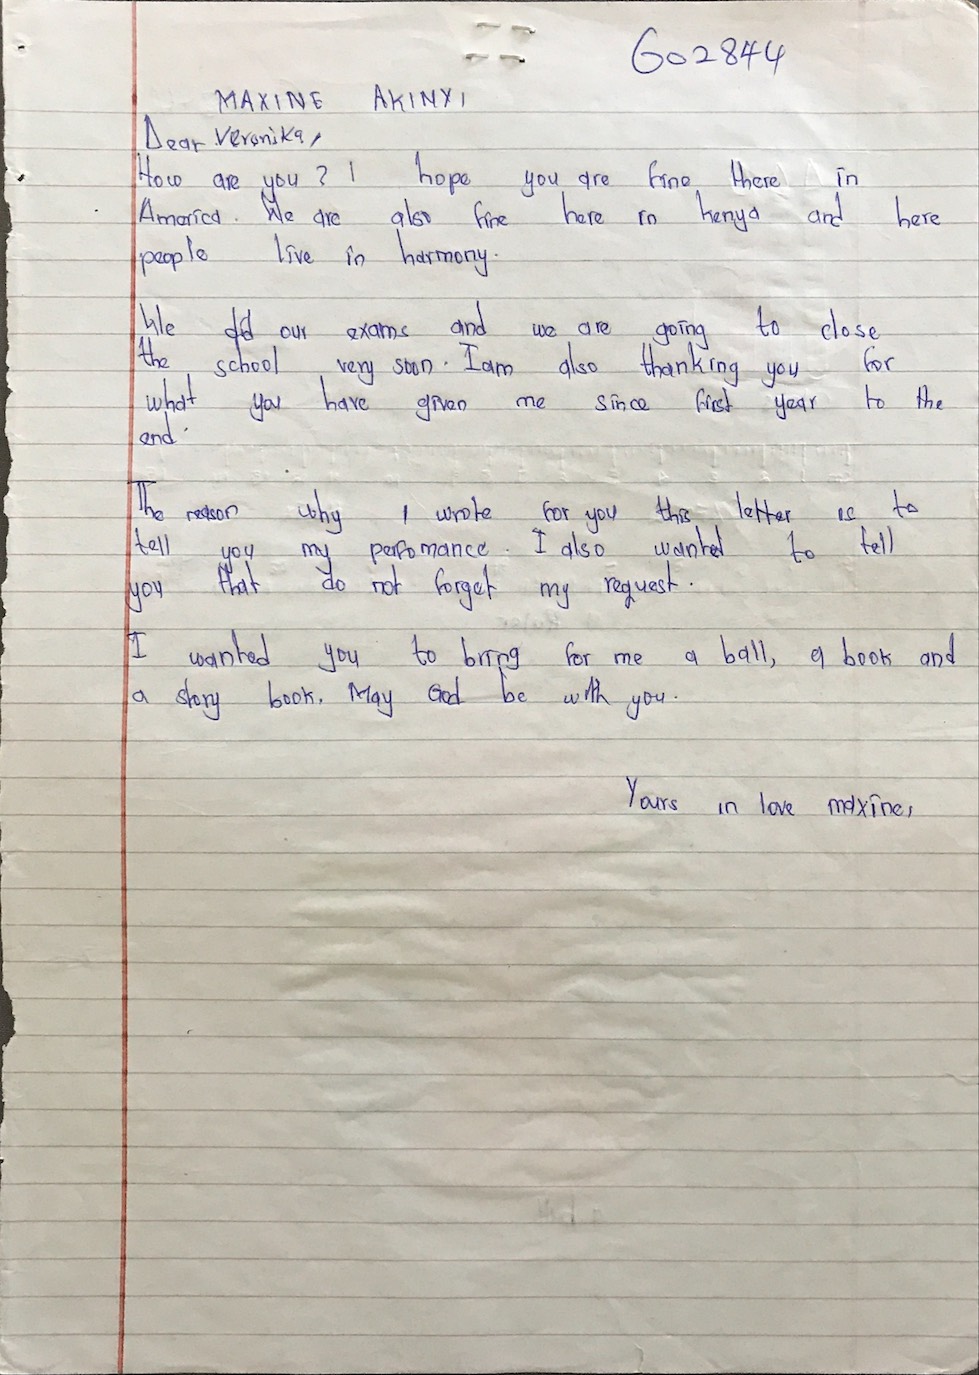 G02844
MAXINE AKINYI
Dear Veronika,
How are you? I hope you are fine there in
America. We are also fine here in kenya and here
people live in harmony.
We did our exams and we are going to close
the school very soon. Iam also thanking you for
what you have given me since first year to the
end.
The reason why I wrote for you this letter is to
tell you my perfomance. I also wanted to tell
you that do not forget my request.
I wanted you to bring for me a ball, a book and
a story book. May God be with you.
Yours in love maxine,